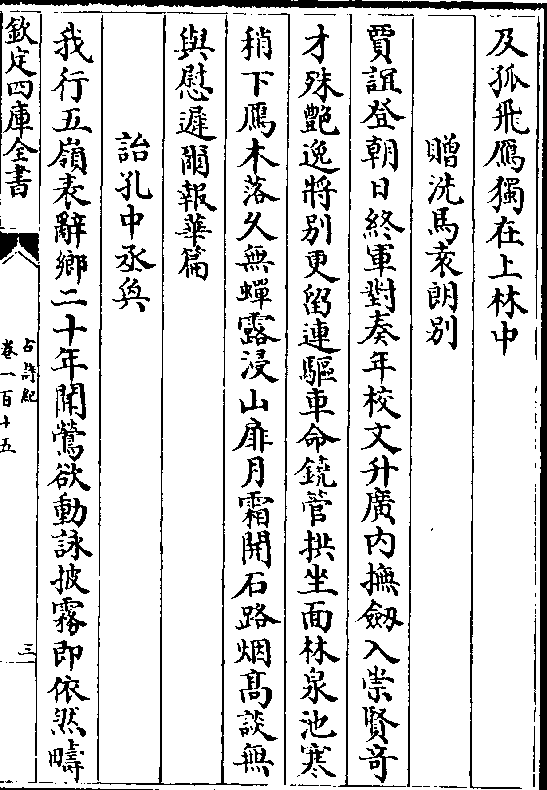 及孤飛鴈獨在上林中
贈洗馬袁朗別
賈誼登朝日終軍對奏年校文升廣内撫劒入崇賢奇
才殊艷逸將别更留連驅車命鐃管拱坐面林泉池寒
稍下鴈木落久無蟬露浸山扉月霜開石路烟髙談無
與慰遲爾報華篇
詒孔中丞奐
我行五嶺表辭鄉二十年聞鶯欲動詠披霧即依然疇
欽定四庫全書
古詩紀
卷一百十五
三